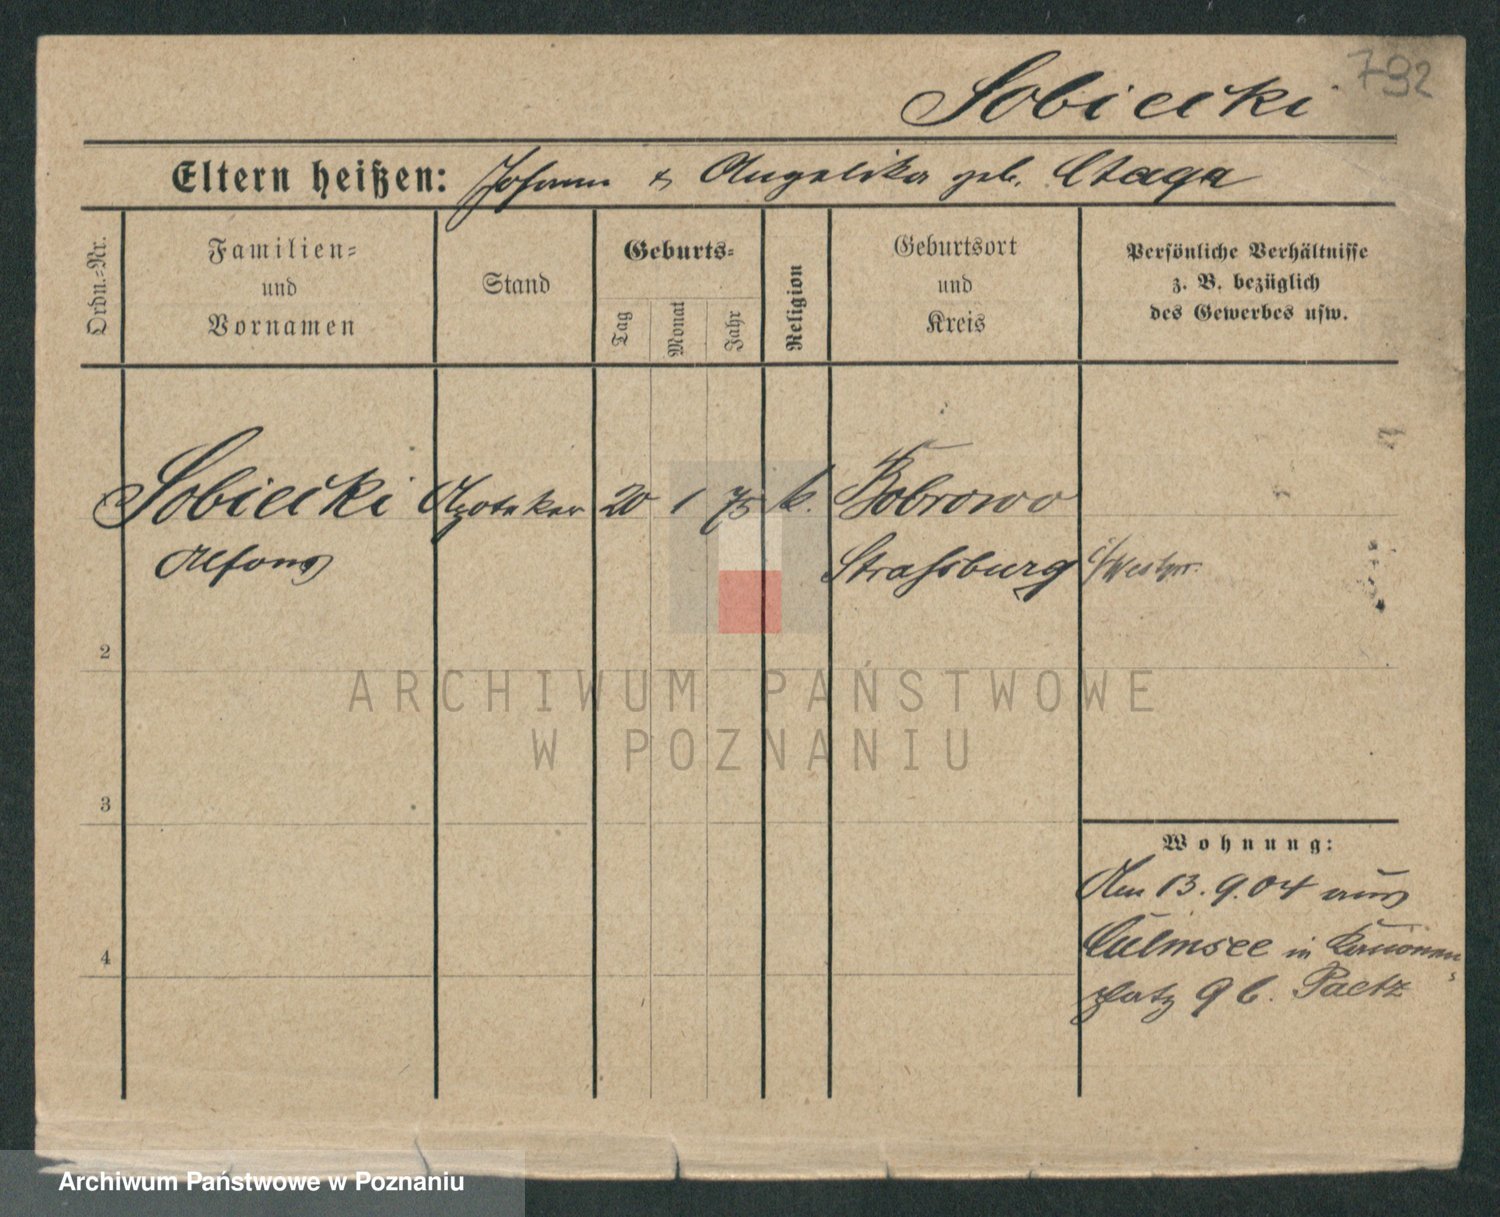 792
Sobiecki
Eltern heißen: Johann & Angelika geb. Czaga
Ordn.-Nr.
Familien-
und
Vornamen
Stand
Geburts-
Tag
Monat
Jahr
Religion
Geburtsort
und
Kreis
Persönliche Verhältnisse
z. B. bezüglich
des Gewerbes usw.
Sobiecki Apoteker 20 1 75 k. Bobrowo
Alfons Strassburg i/Westpr.
2
3
4
ARCHIWUM PAŃSTWOWE
W POZNANIU
Wohnung:
Am 13.9.04 aus
Culmsee in
platz 9 b. Paetz
Archiwum Państwowe w Poznaniu